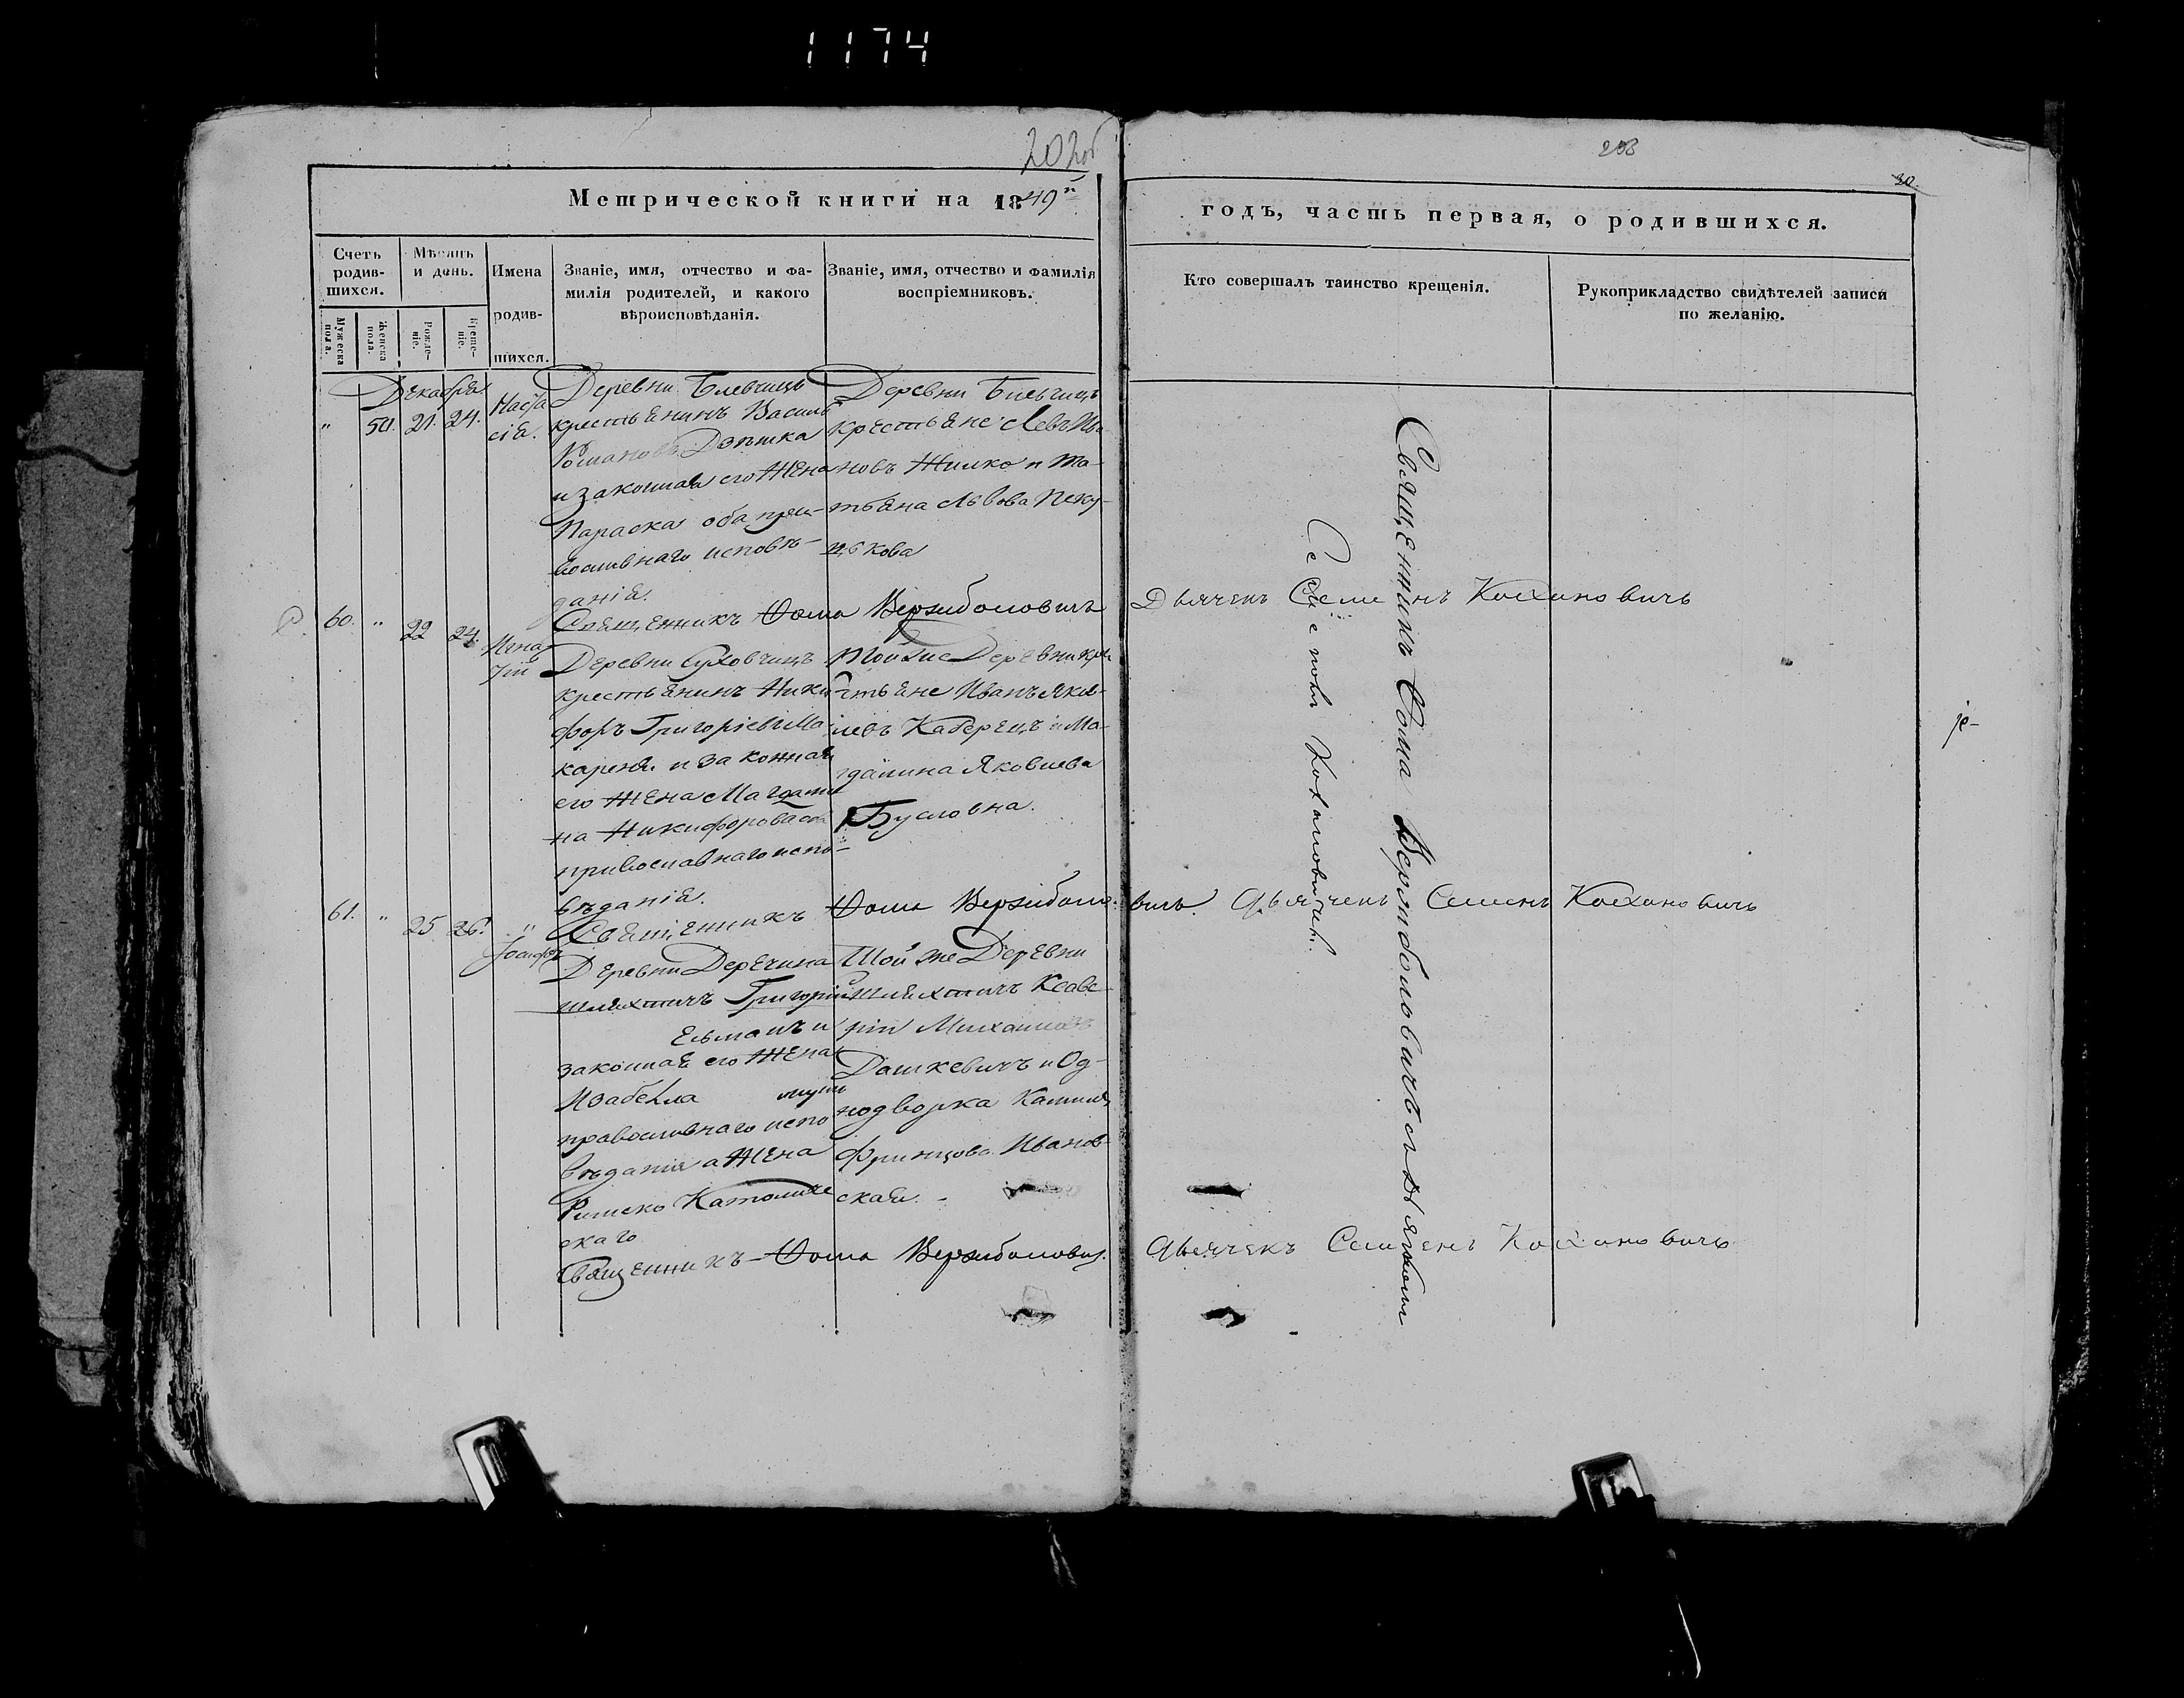 1174
202 об
203
30.
Метрической книги на 1849й
годъ, часть первая, о родившихся.
Счетъ родив-шихся.
Мѣсяцъ и день.
Имена родив-шихся.
Званіе, имя, отчество и фа-
милія родителей, и какого
вѣроисповѣданія.
Званіе, имя, отчество и фамилія
воспріемниковъ.
Кто совершалъ таинство крещенія.
Рукоприкладство свидѣтелей записи
по желанію.
Мужеска пола.
Женска пола.
Рожде-ніе.
Креще-ніе.
Декабря
" 50. 21. 24.
Наста
сія.
Деревни
крестьянинъ Василь
Романовъ
и законная его жена
Параска оба пра-
вославнаго исповѣ-
данія.
Деревни
крестьяне Левъ Ива-
новъ Жилко и Та-
тьяна Львова
Священникъ Фома Вержболовичъ Дьячекъ Семенъ Кохановичъ
60. " 22 24.
Игна
тій
Деревни
крестьянинъ Ники
форъ Григоріевъ Ма
каревичъ и законная
его жена Магдали
на Никифорова оба
православнаго испо-
вѣданія.
Той же Деревни кре
стьяне Иванъ Яков-
левъ и Ма-
гдалина Яковлева
Бусловна.
Священникъ Фома Вержболовичъ. Дьячекъ Семенъ Кохановичъ
61. " 25 26.
Іосифъ
Деревни Деречина
шляхтичъ Григорій
и
законная его жена
Изабелла мужъ
православнаго испо
вѣданія а жена
Римско Католиче
скаго
Той же Деревни
шляхтичъ Ксаве-
рій Михаиловъ
Дашкевичъ и Од-
нодворка
Францова Иванов-
ская.
Священникъ Фома Вержболовичъ. Дьячекъ Семенъ Кохановичъ
Священникъ Фома Вержболовичъ съ дьячкомъ
Семеномъ Кохановичемъ.